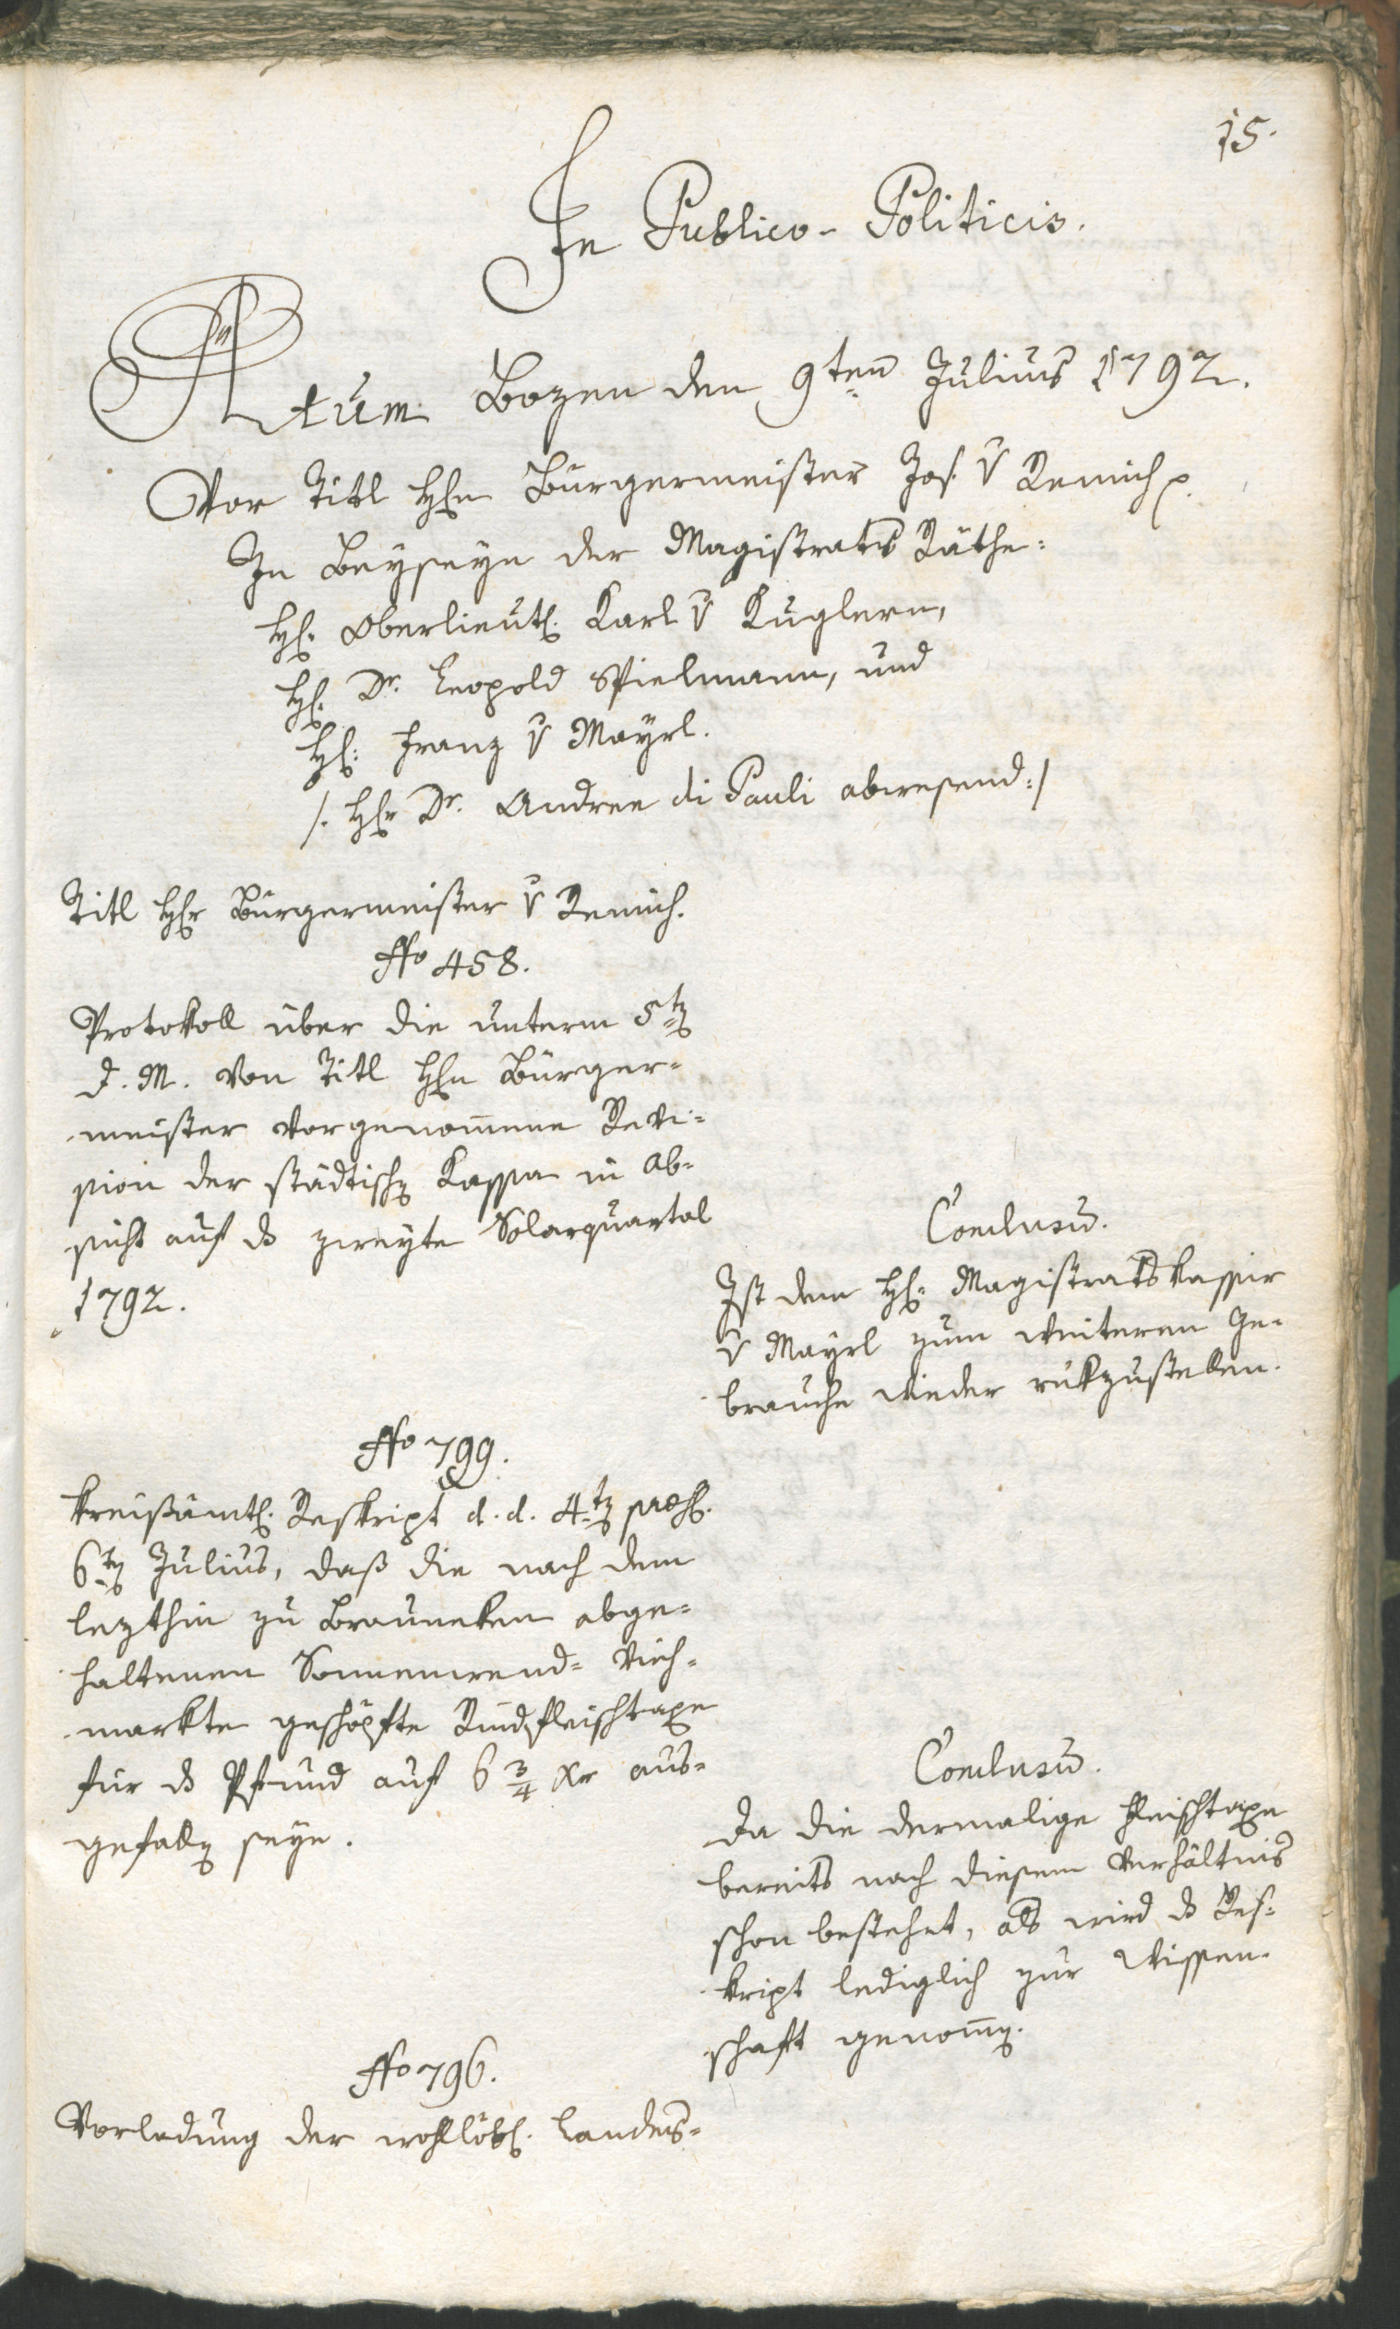 15.
In Publico-Politicis.
Actum Bozen den 9ten Julius 1792.
Vor Titl Hhn Bürgermeister Jos. v Remich p.
In Beyseyn der Magistrats Räthe:
Hh. Oberlieutl. Karl v Kuglern,
Hh. Dr. Leopold Spielmann, und
Hh: Franz v Mayrl.
/. Hhr Dr. Andree di Pauli abwesend :/
Titl Hhr Bürgermeister v Remich.
No 458.
Protokoll über die unterm 5tn
d. M. von Titl Hhn Bürger-
meister vorgenomene Revi-
sion der städtischn Kassa in Ab-
sicht auf ds zweyte Solarquartal
1792.
Conclusu.
Ist dem Hh: Magistratskassir
v Mayrl zum weiteren Ge-
brauche wieder rükzustellen.
No 799.
Kreißämtl. Reskript d. d. 4tn praes.
6tn Julius, daß die nach dem
lezthin zu Brauneken abge-
haltenen Sonnenwend- Vieh-
markte geschöpfte Rindfleischtaxe
für ds Pfund auf 6 3/4 Xr aus-
gefalln seye.
Conclusu.
Da die dermalige Fleischtaxe
bereits nach diesem Verhältnis
schon bestehet, als wird ds Res-
kript lediglich zur Wissen-
schaft genomn.
No 796.
Vorladung der wohllöbl. Landes-